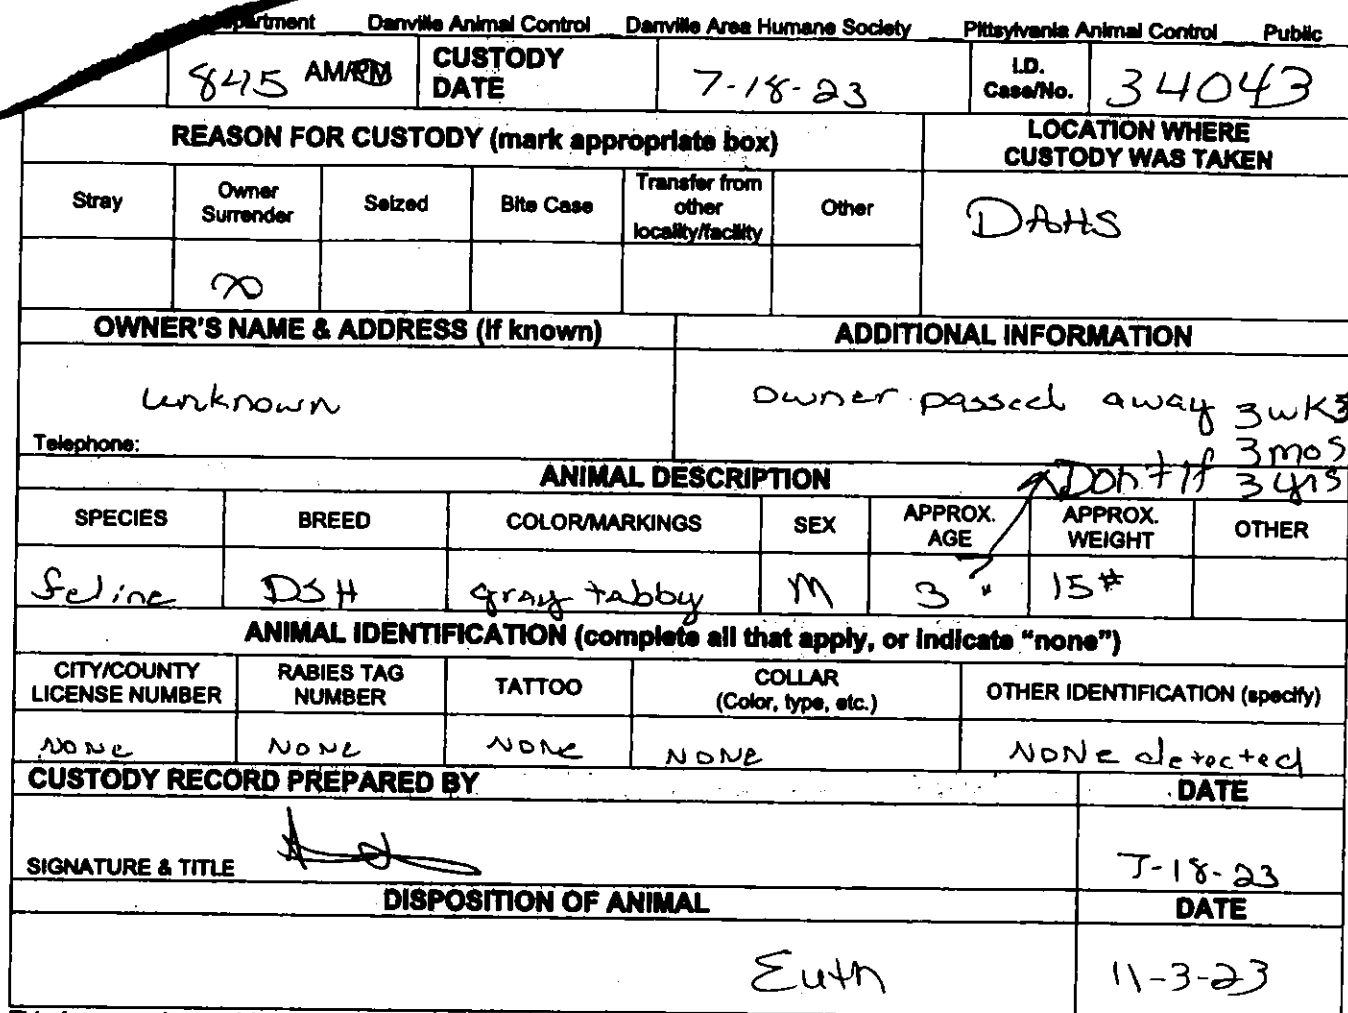 Danville Animal Control Danville Area Humane Society Pittsylvania Animal Control Public
845 AM/PM CUSTODY DATE 7-18-23 I.D. Case/No. 34043
REASON FOR CUSTODY (mark appropriate box) LOCATION WHERE CUSTODY WAS TAKEN
Stray Owner Surrender Seized Bite Case Transfer from other locality/facility Other DAHS
OWNER'S NAME & ADDRESS (if known) ADDITIONAL INFORMATION
unknown owner passed away 3wks
Telephone: 3mos
ANIMAL DESCRIPTION Don't If 3yrs
SPECIES BREED COLOR/MARKINGS SEX APPROX. AGE APPROX. WEIGHT OTHER
feline DSH gray tabby M 3 " 15#
ANIMAL IDENTIFICATION (complete all that apply, or indicate "none")
CITY/COUNTY LICENSE NUMBER RABIES TAG NUMBER TATTOO COLLAR (Color, type, etc.) OTHER IDENTIFICATION (specify)
NONE NONE NONE NONE NONE detected
CUSTODY RECORD PREPARED BY DATE
SIGNATURE & TITLE 7-18-23
DISPOSITION OF ANIMAL DATE
Euth 11-3-23